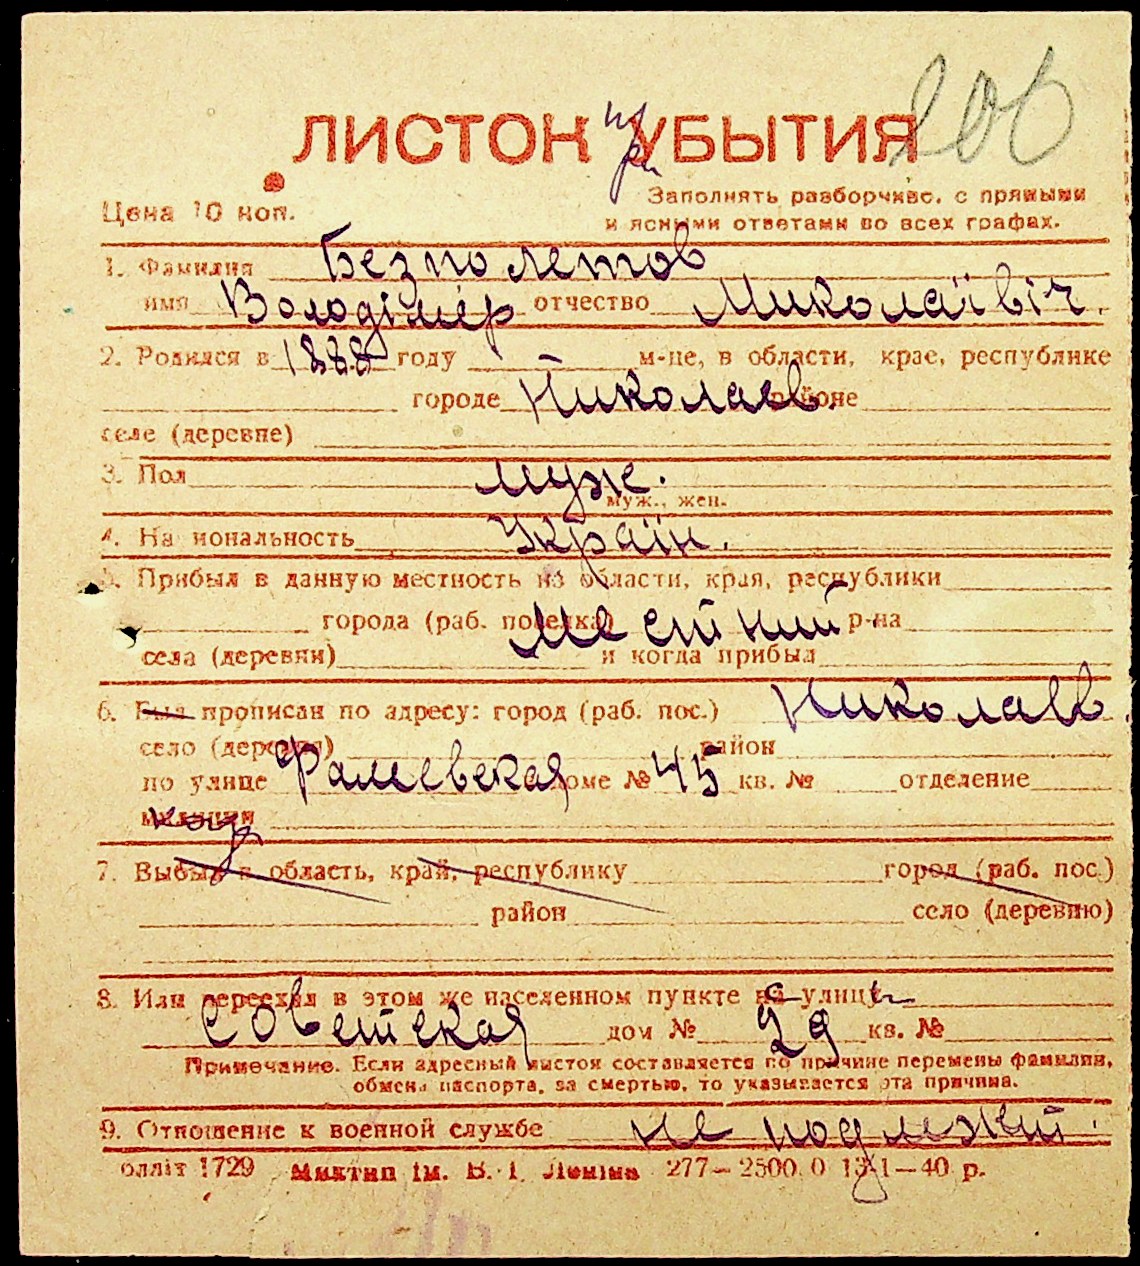 200
ЛИСТОК УБЫТИЯ
при
Цена 10 коп.
Заполнять разборчиво, с прямыми
и ясными ответами во всех графах.
1. Фамилия Безполетов
имя Володімір отчество Миколаївіч.
2. Родился в 1888 году м-це, в области, крае, республике
городе Николаев. районе
селе (деревне)
3. Пол муж.
муж., жен.
4. Национальность Україн.
5. Прибыл в данную местность из области, края, республики
города (раб. поселка) местний р-на
села (деревни) и когда прибыл
6. Был прописан по адресу: город (раб. пос.) Николаев.
село (деревня) район
по улице Фалеевская доме № 45 кв. № отделение
милиции
7. Выбыл в область, край, республику город (раб. пос.)
район село (деревню)
8. Или переехал в этом же населенном пункте на улицу
Советская дом № 29 кв. №
Примечание. Если адресный листок составляется по причине перемены фамилии,
обмена паспорта, за смертью, то указывается эта причина.
9. Отношение к военной службе не подлежит.
олліт 1729 Миктип ім. В. І. Леніна 277—2500.0 13-1—40 р.